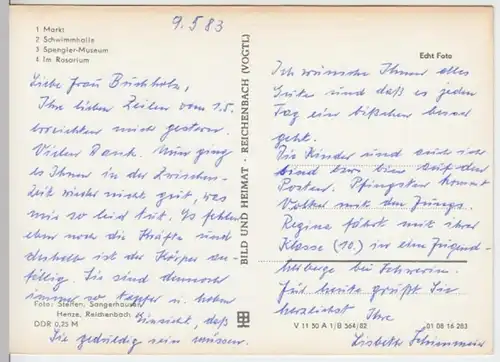 9.5.83
1 Markt
2 Schwimmhalle
3 Spengler-Museum
4 Im Rosarium
Liebe Frau Buchholz,
Ihre lieben Zeilen vom 1.5.
erreichten mich gestern.
Vielen Dank. Nun ging
es Ihnen in der Zwischen-
zeit wieder nicht gut, was
mir so leid tut. Es fehlen
eben noch die Kräfte und
deshalb ist der Körper an-
fällig. Sie sind dennoch
immer so tapfer u. haben
Einsicht, daß
Sie geduldig sein müssen.
Foto: Steffen, Sangerhausen
Henze, Reichenbach
DDR 0,25 M
BILD UND HEIMAT · REICHENBACH (VOGTL)
Echt Foto
Ich wünsche Ihnen alles
Gute und daß es jeden
Tag ein bißchen besser
geht.
Die Kinder und auch ich
sind bzw. bin auf dem
Posten. Pfingsten kommt
Volker mit den Jungs.
Regina fährt mit ihrer
Klasse (10.) in eine Jugend-
herberge bei Schwerin.
Für heute grüßt Sie
herzlichst Ihre
Lisbeth
V 11 50 A 1/B 564/82 01 08 16 283